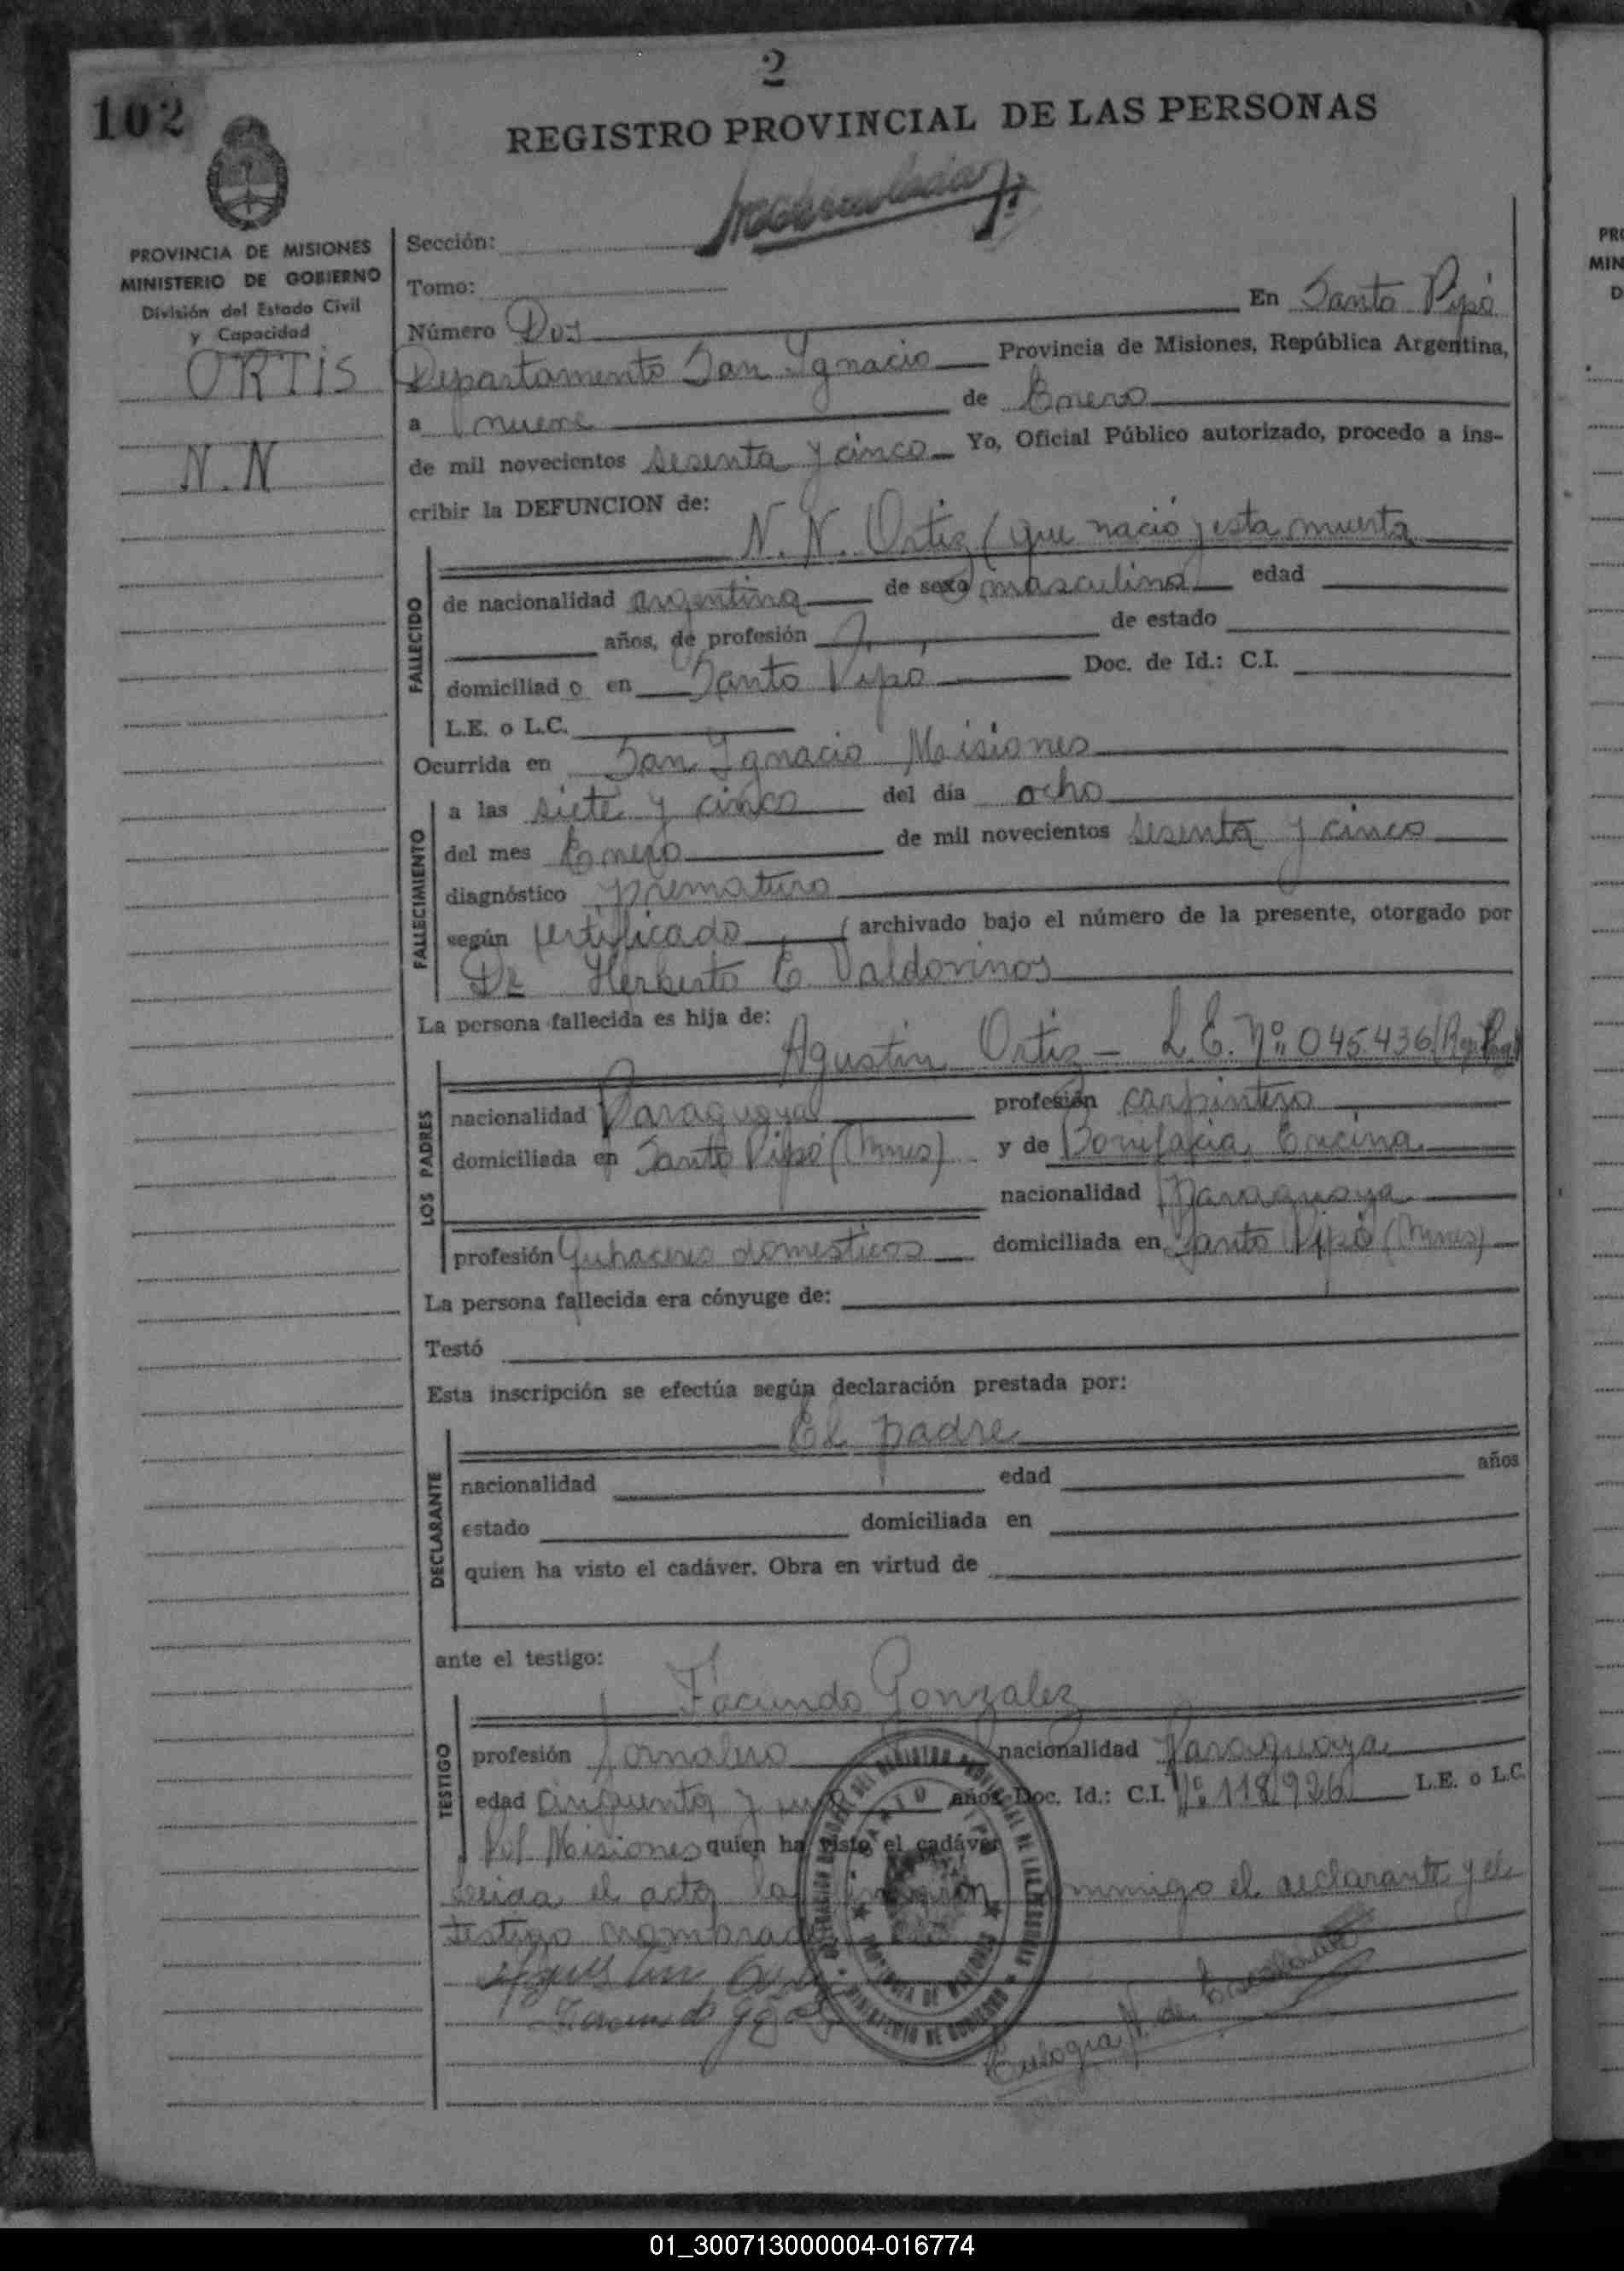 2
102
REGISTRO PROVINCIAL DE LAS PERSONAS
PROVINCIA DE MISIONES
MINISTERIO DE GOBIERNO
División del Estado Civil
y Capacidad
ORTIS
N.N
Sección:
Tomo:
Número Dos En Santo Pipó
Departamento San Ignacio Provincia de Misiones, República Argentina,
a nueve de Enero
de mil novecientos sesenta y cinco Yo, Oficial Público autorizado, procedo a ins-
cribir la DEFUNCION de:
N. N. Ortiz (que nació y esta muerta
FALLECIDO
de nacionalidad argentina de sexo masculino edad
años, de profesión de estado
domiciliad o en Santo Pipó Doc. de Id.: C.I.
L.E. o L.C.
Ocurrida en San Ignacio Misiones
FALLECIMIENTO
a las siete y cinco del día ocho
del mes Enero de mil novecientos sesenta y cinco
diagnóstico prematuro
según certificado archivado bajo el número de la presente, otorgado por
Dr Herberto E. Valdovinos
La persona fallecida es hija de:
Agustin Ortiz - L.E. Nº 045.436
LOS PADRES
nacionalidad Paraguaya profesión carpintero
domiciliada en Santo Pipó (Mnes) y de Bonifacia Encina
nacionalidad Paraguaya
profesión Quhaceres domesticos domiciliada en Santo Pipó (Mnes)
La persona fallecida era cónyuge de:
Testó
Esta inscripción se efectúa según declaración prestada por:
El padre
DECLARANTE
nacionalidad edad años
estado domiciliada en
quien ha visto el cadáver. Obra en virtud de
ante el testigo:
Facundo Gonzalez
TESTIGO
profesión Jornalero nacionalidad Paraguaya
edad cincuenta y años Doc. Id.: C.I. Nº 118926 L.E. o L.C.
Pol. Misiones quien ha visto el cadáver
Leida el acta la conmigo el declarante y el
testigo
Eulogia de Escalante
01_300713000004-016774